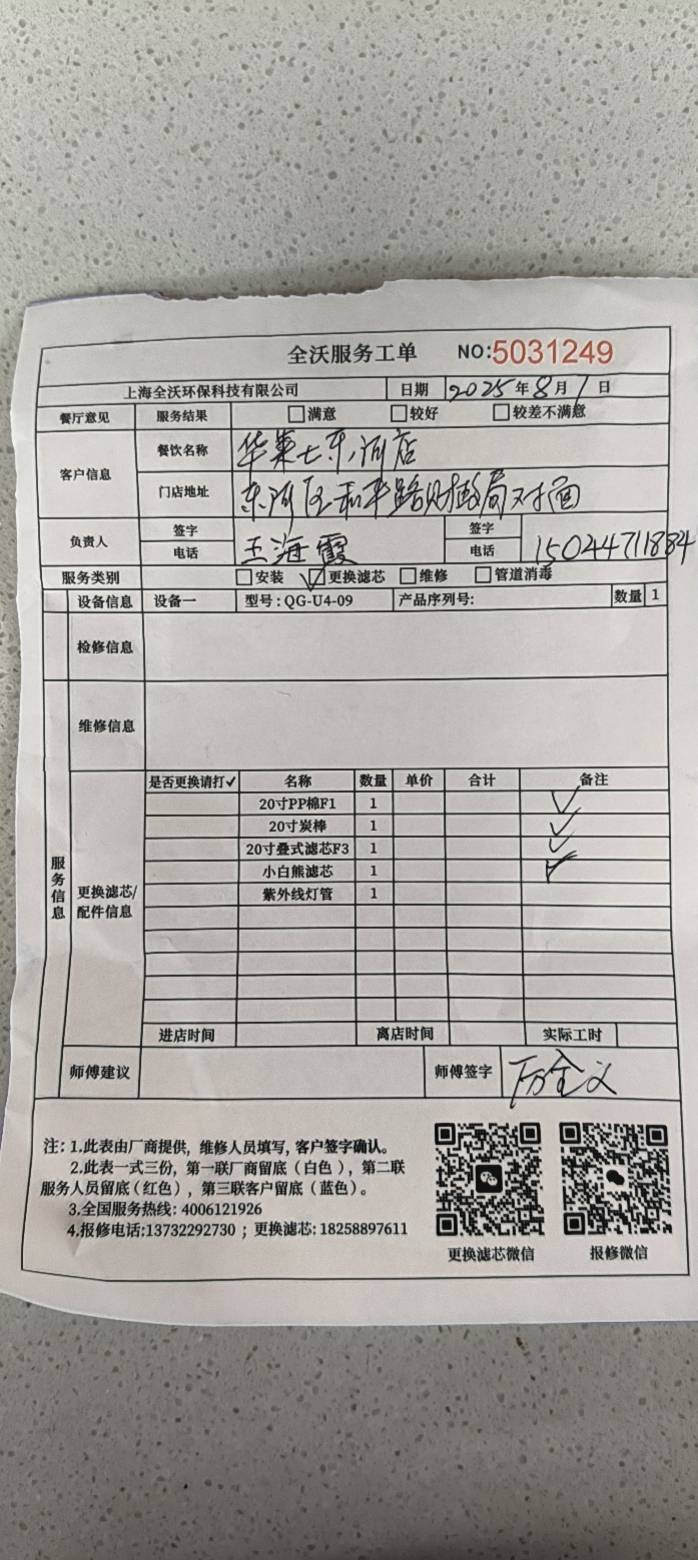 全沃服务工单 NO:5031249
上海全沃环保科技有限公司 日期 2025年8月7日
餐厅意见 服务结果 □满意 □较好 □较差不满意
客户信息 餐饮名称 华莱士东河店
门店地址 东河区和平路财政局对面
负责人 签字 王海霞 签字
电话 电话 15044711884
服务类别 □安装 ☑更换滤芯 □维修 □管道消毒
设备信息 设备一 型号:QG-U4-09 产品序列号: 数量 1
检修信息
维修信息
服务信息
更换滤芯/配件信息
是否更换请打✓ 名称 数量 单价 合计 备注
20寸PP棉F1 1 ✓
20寸炭棒 1 ✓
20寸叠式滤芯F3 1 ✓
小白熊滤芯 1 ✓
紫外线灯管 1
进店时间 离店时间 实际工时
师傅建议 师傅签字
注:1.此表由厂商提供,维修人员填写,客户签字确认。
2.此表一式三份,第一联厂商留底(白色),第二联
服务人员留底(红色),第三联客户留底(蓝色)。
3.全国服务热线:4006121926
4.报修电话:13732292730;更换滤芯:18258897611
更换滤芯微信 报修微信